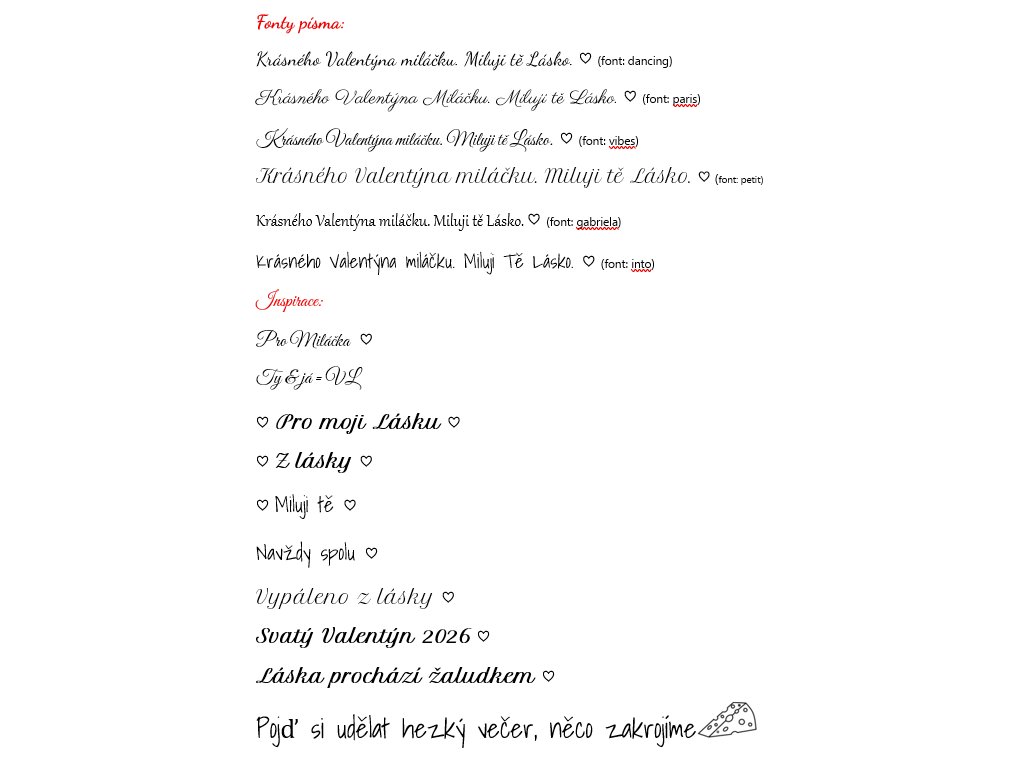 Fonty písma:
Krásného Valentýna miláčku. Miluji tě Lásko. ♡ (font: dancing)
Krásného Valentýna Miláčku. Miluji tě Lásko. ♡ (font: paris)
Krásného Valentýna miláčku. Miluji tě Lásko. ♡ (font: vibes)
Krásného Valentýna miláčku. Miluji tě Lásko. ♡ (font: petit)
Krásného Valentýna miláčku. Miluji tě Lásko. ♡ (font: gabriela)
Krásného Valentýna miláčku. Miluji Tě Lásko. ♡ (font: into)
Inspirace:
Pro Miláčka ♡
Ty & já = VL
♡ Pro moji Lásku ♡
♡ Z lásky ♡
♡ Miluji tě ♡
Navždy spolu ♡
Vypáleno z lásky ♡
Svatý Valentýn 2026 ♡
Láska prochází žaludkem ♡
Pojď si udělat hezký večer, něco zakrojíme